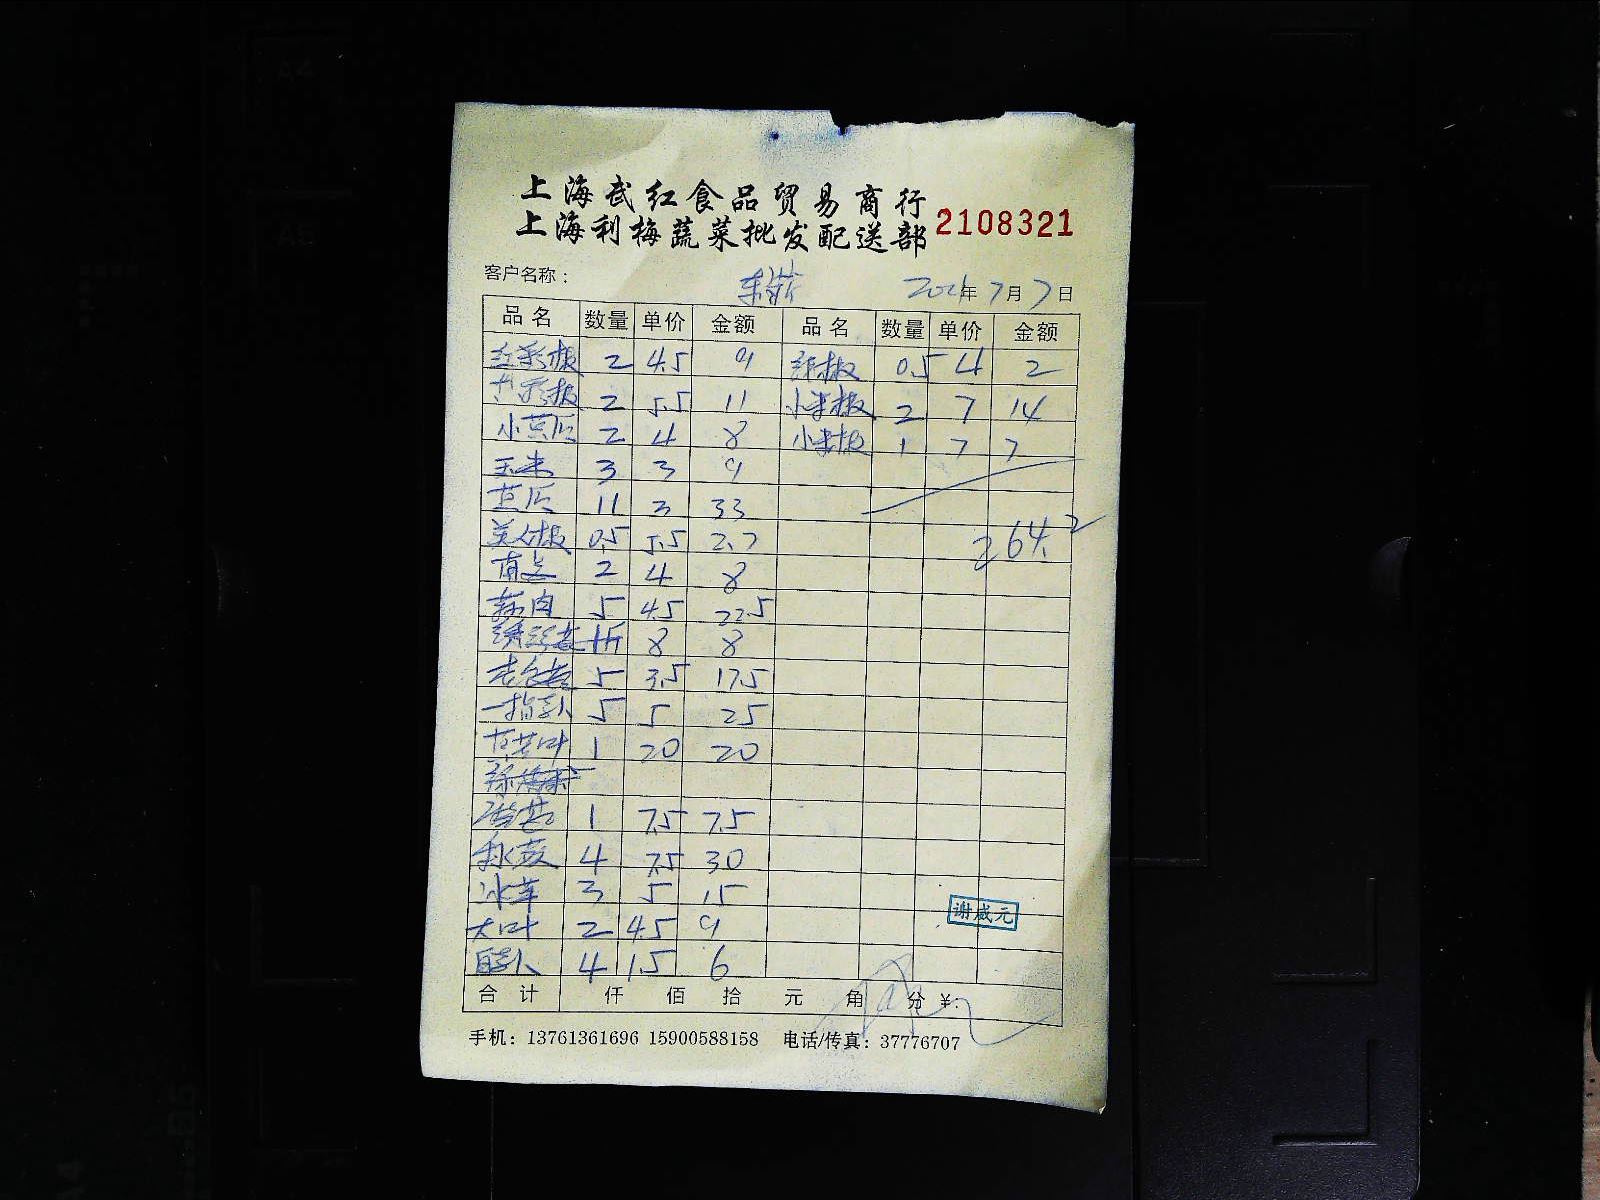 上海武红食品贸易商行
上海利梅蔬菜批发配送部 2108321
客户名称： 年 7 月 7 日
品名 数量 单价 金额 品名 数量 单价 金额
红彩椒 2 4.5 9 辣椒 0.5 4 2
2 5.5 11 小米椒 2 7 14
小黄瓜 2 4 8 小米椒 1 7 7
玉米 3 3 9
黄瓜 11 3 33
美人椒 0.5 5.5 2.7
264.2
2 4 8
5 4.5 22.5
8 8
5 3.5 17.5
5 5 25
1 20 20
1 7.5 7.5
4 7.5 30
冰草 3 5 15
大叶 2 4.5 9
4 1.5 6
谢咸元
合计 仟 佰 拾 元 角 分 ¥:
手机：13761361696 15900588158 电话/传真：37776707